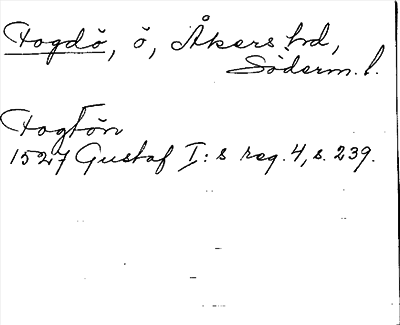 Fogdö, ö, Åkers hd,
Söderm. l.
Fogton
1527 Gustaf I:s reg. 4, s. 239.